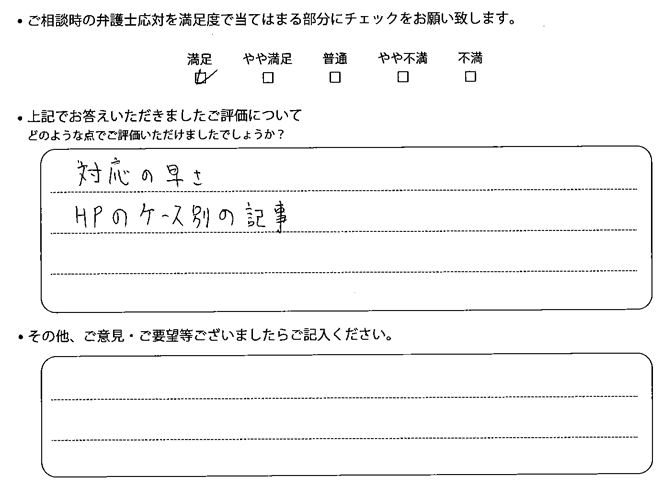 ・ご相談時の弁護士応対を満足度で当てはまる部分にチェックをお願い致します。
満足 やや満足 普通 やや不満 不満
☑ □ □ □ □
・上記でお答えいただきましたご評価について
どのような点でご評価いただけましたでしょうか？
対応の早さ
HPのケース別の記事
・その他、ご意見・ご要望等ございましたらご記入ください。